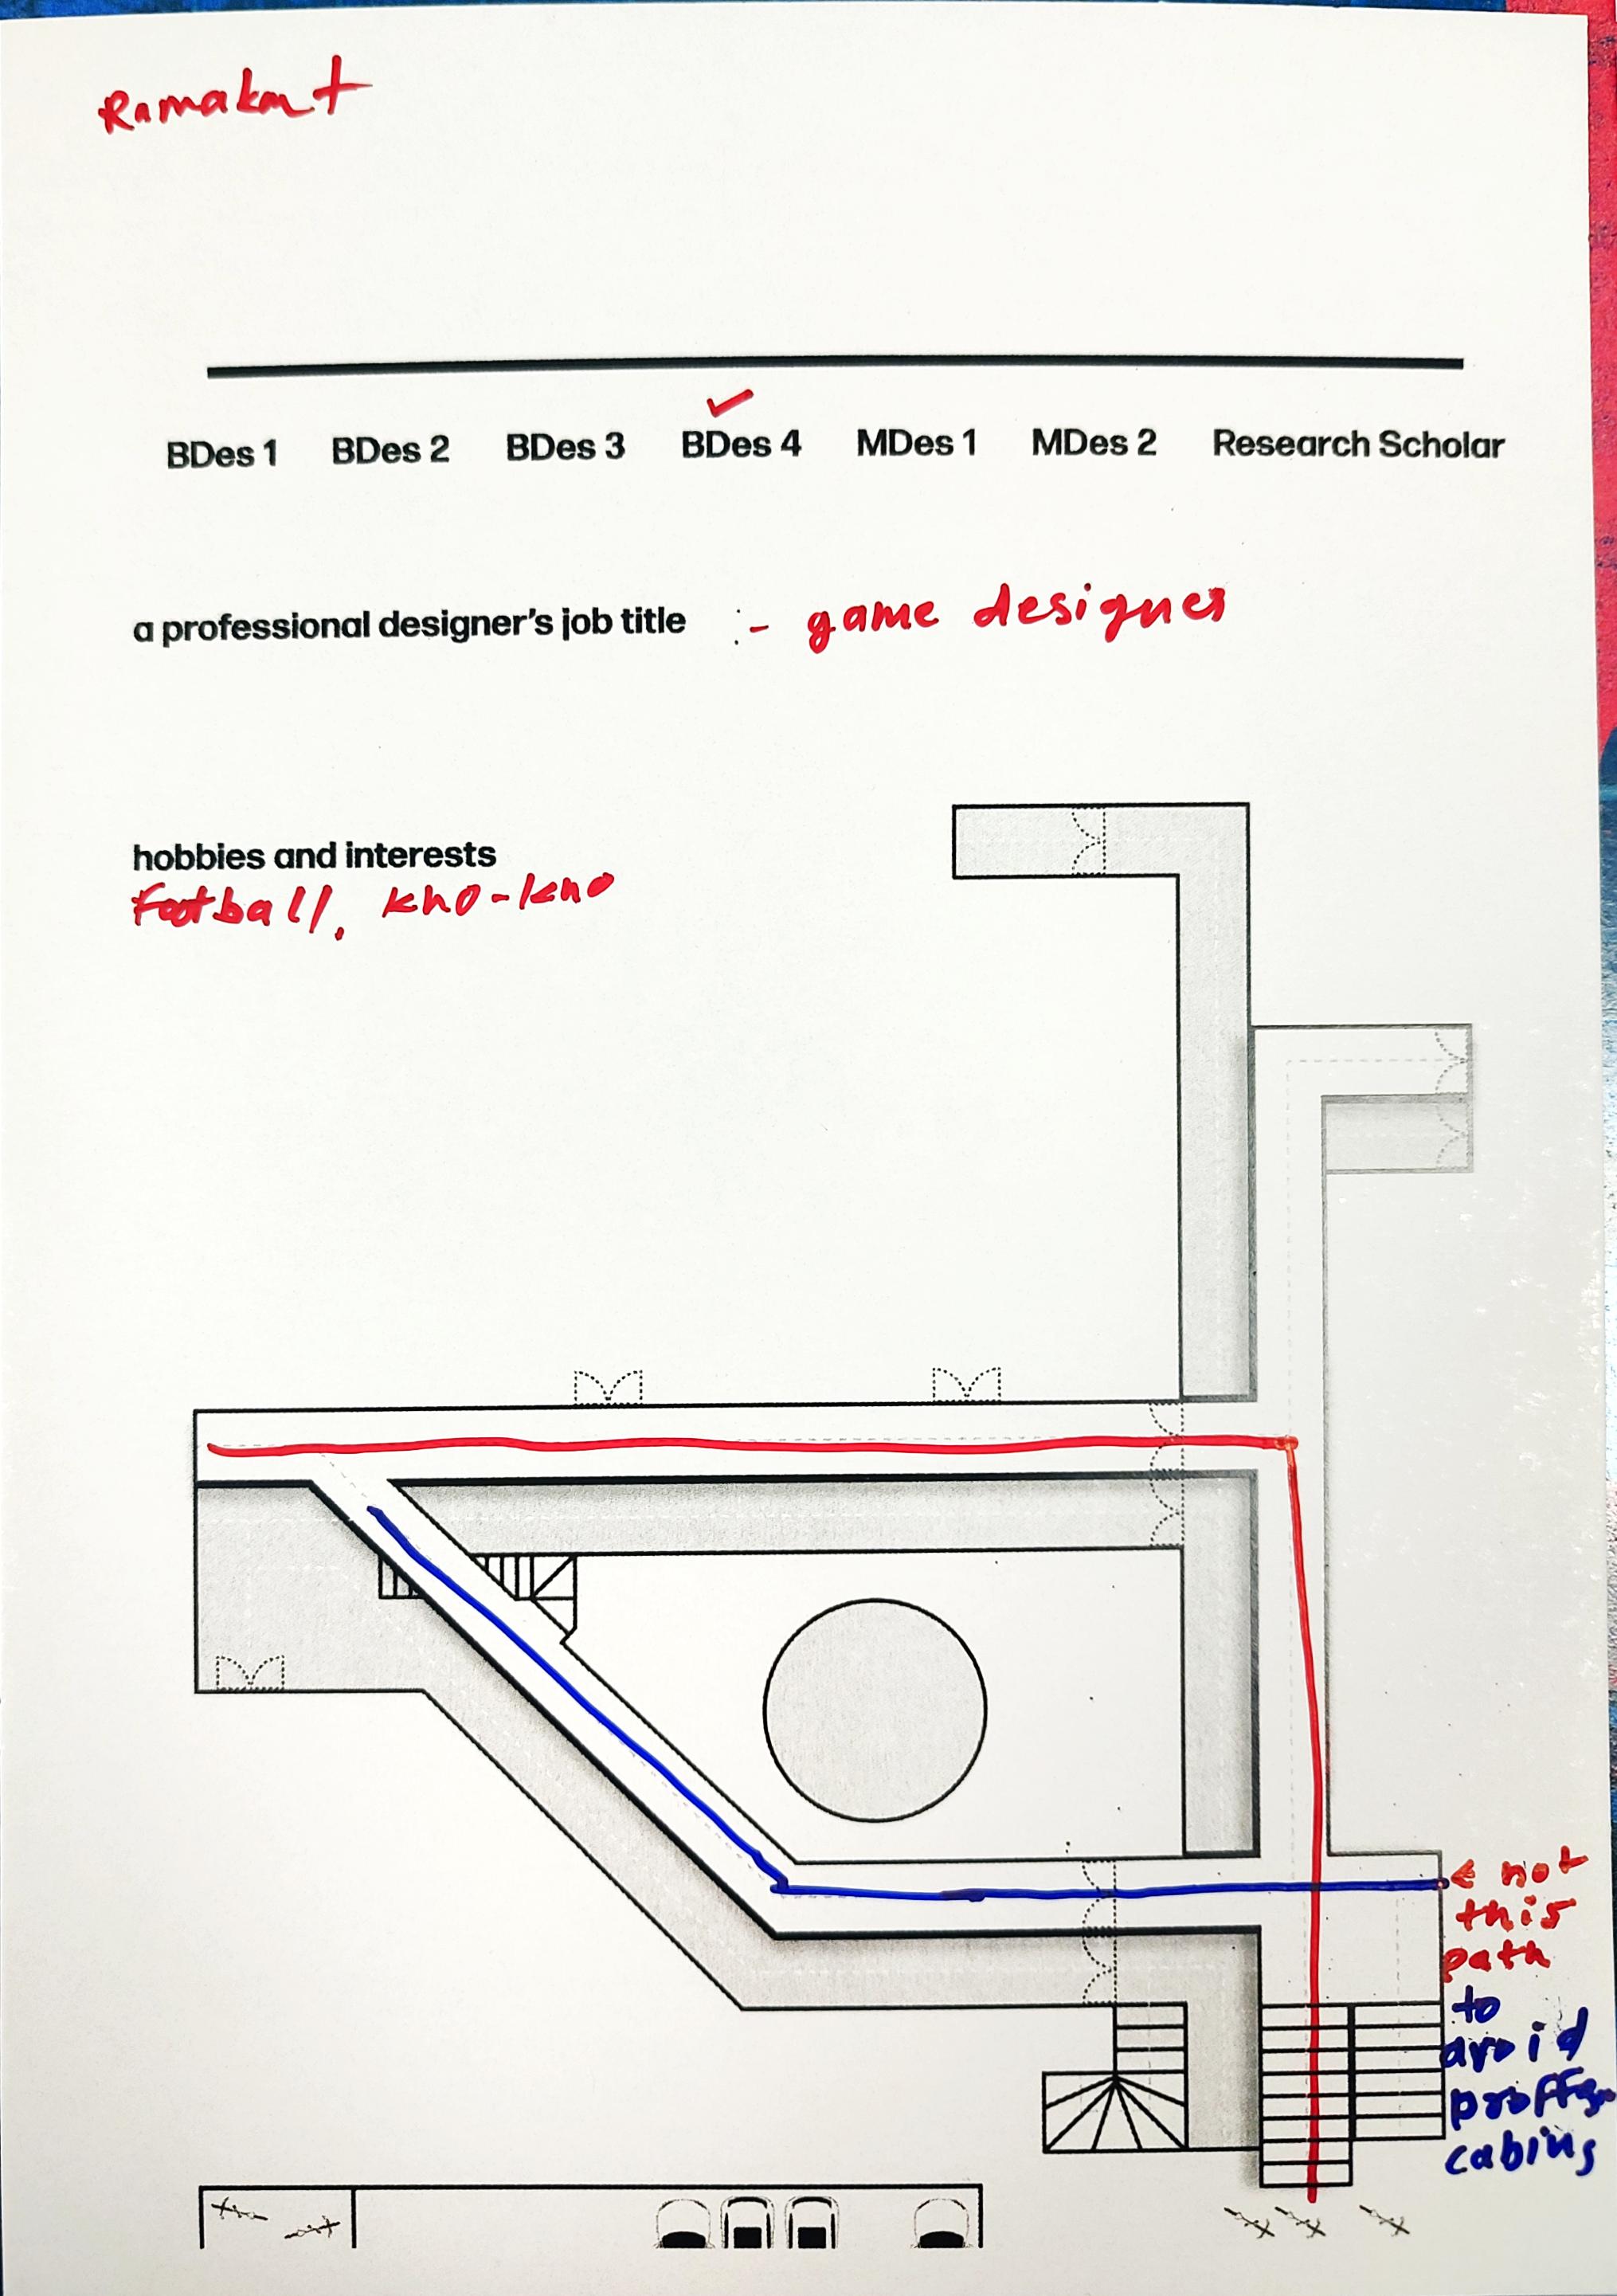 Ramakant
BDes 1 BDes 2 BDes 3 BDes 4 MDes 1 MDes 2 Research Scholar
a professional designer's job title :- game designer
hobbies and interests
Football, kho-kho
not
this
path
to
avoid
cabins